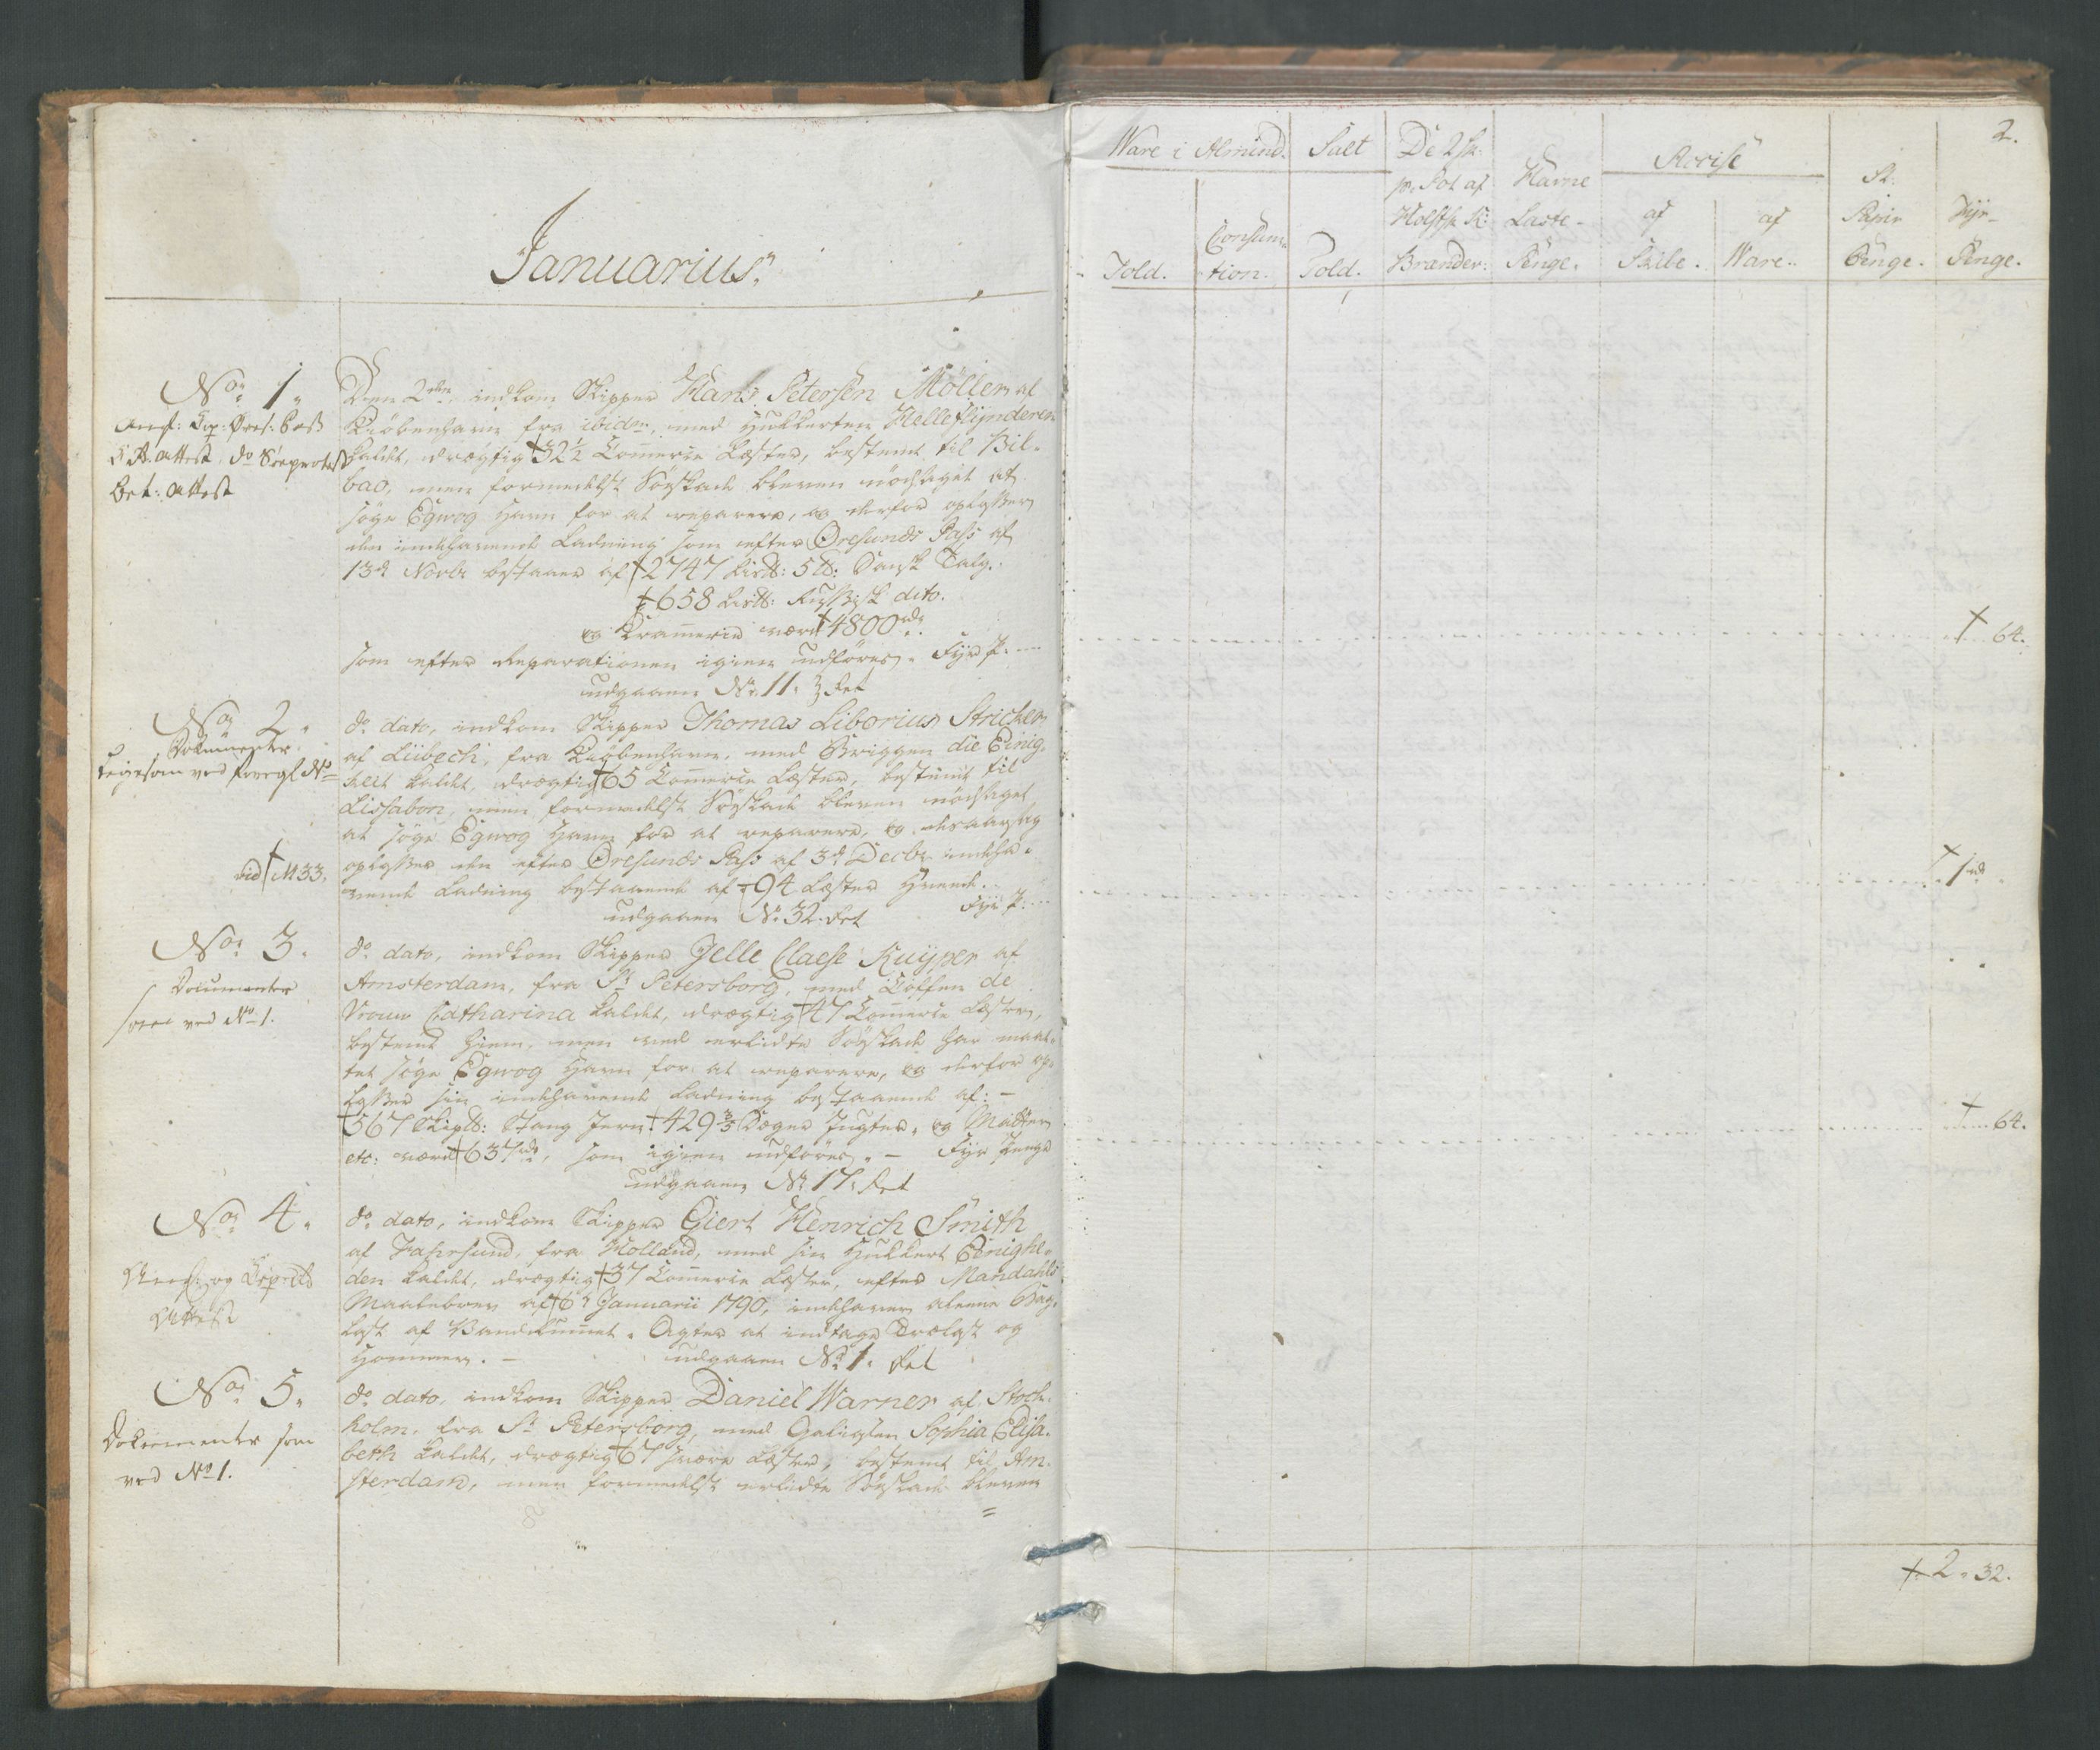 Januarius.
No 1.
Den 2den indkom Skipper Hans Petersen Möller af
Kiöbenhavn fra ibidm, med Hukkerten Helleflynderen
kaldet, drægtig † 32½ Commerce Læster, bestemt til Bil-
bao, men formedelst Söeskade bleven nödsaget at
söge Egwog Havn for at reparere, og derfor oplosser
den indehavende Ladning som efter Øresunds Pass af
13d Novbr bestaaer af † 2747 Lis℔: 5 ℔: Dansk Talg.
† 658 Lis℔: Russisk dito.
og Kramerie værd † 4800 rdr
som efter Reparationen igien udföres. Fyr P.
udgaaen No 11.
No 2.
Documenter
ligesom ved No
vid † M 33.
do dato, indkom Skipper Thomas Liborius Stricker
af Lübech, fra Kiöbenhavn, med Briggen die Einig-
keit kaldet, drægtig † 65 Commerce Læster, bestemt til
Lissabon, men formedelst Söeskade bleven nödsaget
at söge Egwog Havn for at reparere, og
oplosser den efter Øresunds Pass af 3d Decbr indeha-
vende Ladning bestaaende af † 94 Læster Hvede.
udgaaen No 32. Fyr P.
No 3.
Documenter
som ved No 1.
do dato, indkom Skipper Jelle Claese Kuyper af
Amsterdam, fra St Petersborg, med Coffen de
Vrouw Catharina kaldet, drægtig † 47 Commerce Læster,
bestemt hiem, men ved erlidte Söeskade har maat-
tet söge Egwog Havn for at reparere, og derfor op-
losser sin indehavende Ladning bestaaende af: -
† 567 Skip℔: Stang Jern † 429 3/5 Deger Jugter, og Matter
etc: værd † 637 rdr, som igien udföres. - Fyr Penge
udgaaen No 17.
No 4.
Attest
do dato, indkom Skipper Giert Henrich Smith
af Fahrsund, fra Holland, med sin Hukkert Eenighe-
den kaldet, drægtig † 37 Commerce Læster, efter Mandahls
Maalebrev af † 6d Januarii 1790, indehaver aleene Bag-
last af Sand. Agter at indtage Trælast og
Hommer. - udgaaen No 1.
No 5.
Dokumenter som
ved No 1.
do dato, indkom Skipper Daniel Warner af Stock-
holm, fra St Petersborg, med Galiasen Sophia Elisa-
beth kaldet, drægtig † 67 svære Læster, bestemt til Am-
sterdam, men formedelst erlidte Söeskade bleven
=
2.
Ware i Almind. Salt De 2 sk. Havne Accise St. Fyr-
pr. Pot af Laste- af af Papir
Told. Consum- Told. Holstsk K: Penge. Skibe. Ware. Penge. Penge.
tion. Brænder:
† 64.
† 1 rd
† 64.
† 2. 32.